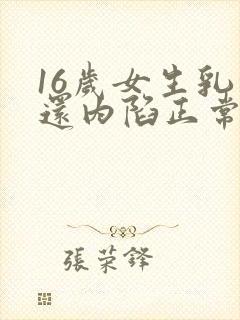 16歲女生乳
還內陷正常
張荣铎